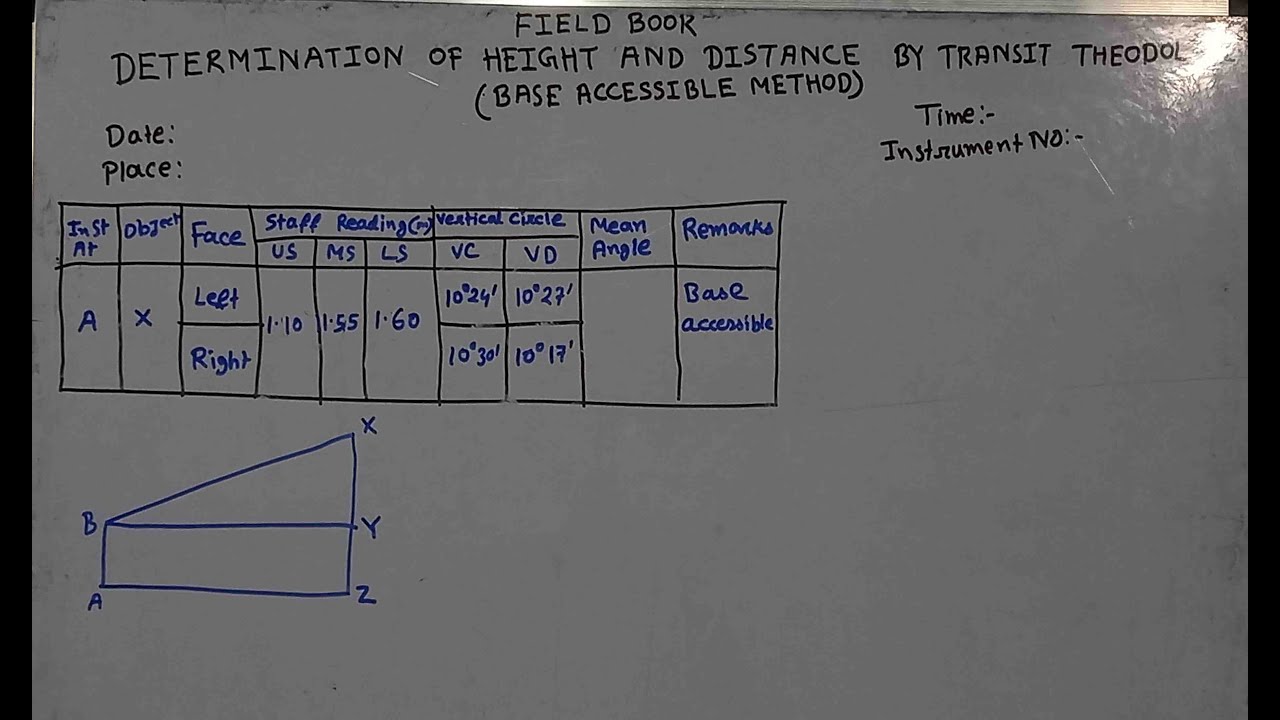 FIELD BOOK
DETERMINATION OF HEIGHT AND DISTANCE BY TRANSIT THEODOL
(BASE ACCESSIBLE METHOD)
Date:
Time:-
Place:
Instrument No:-
Inst At Object Face Staff Reading(m) Vertical Circle Mean Angle Remarks
US MS LS VC VD
A X Left 1.10 1.55 1.60 10°24' 10°27' Base accessible
Right 10°30' 10°17'
X
B Y
A Z